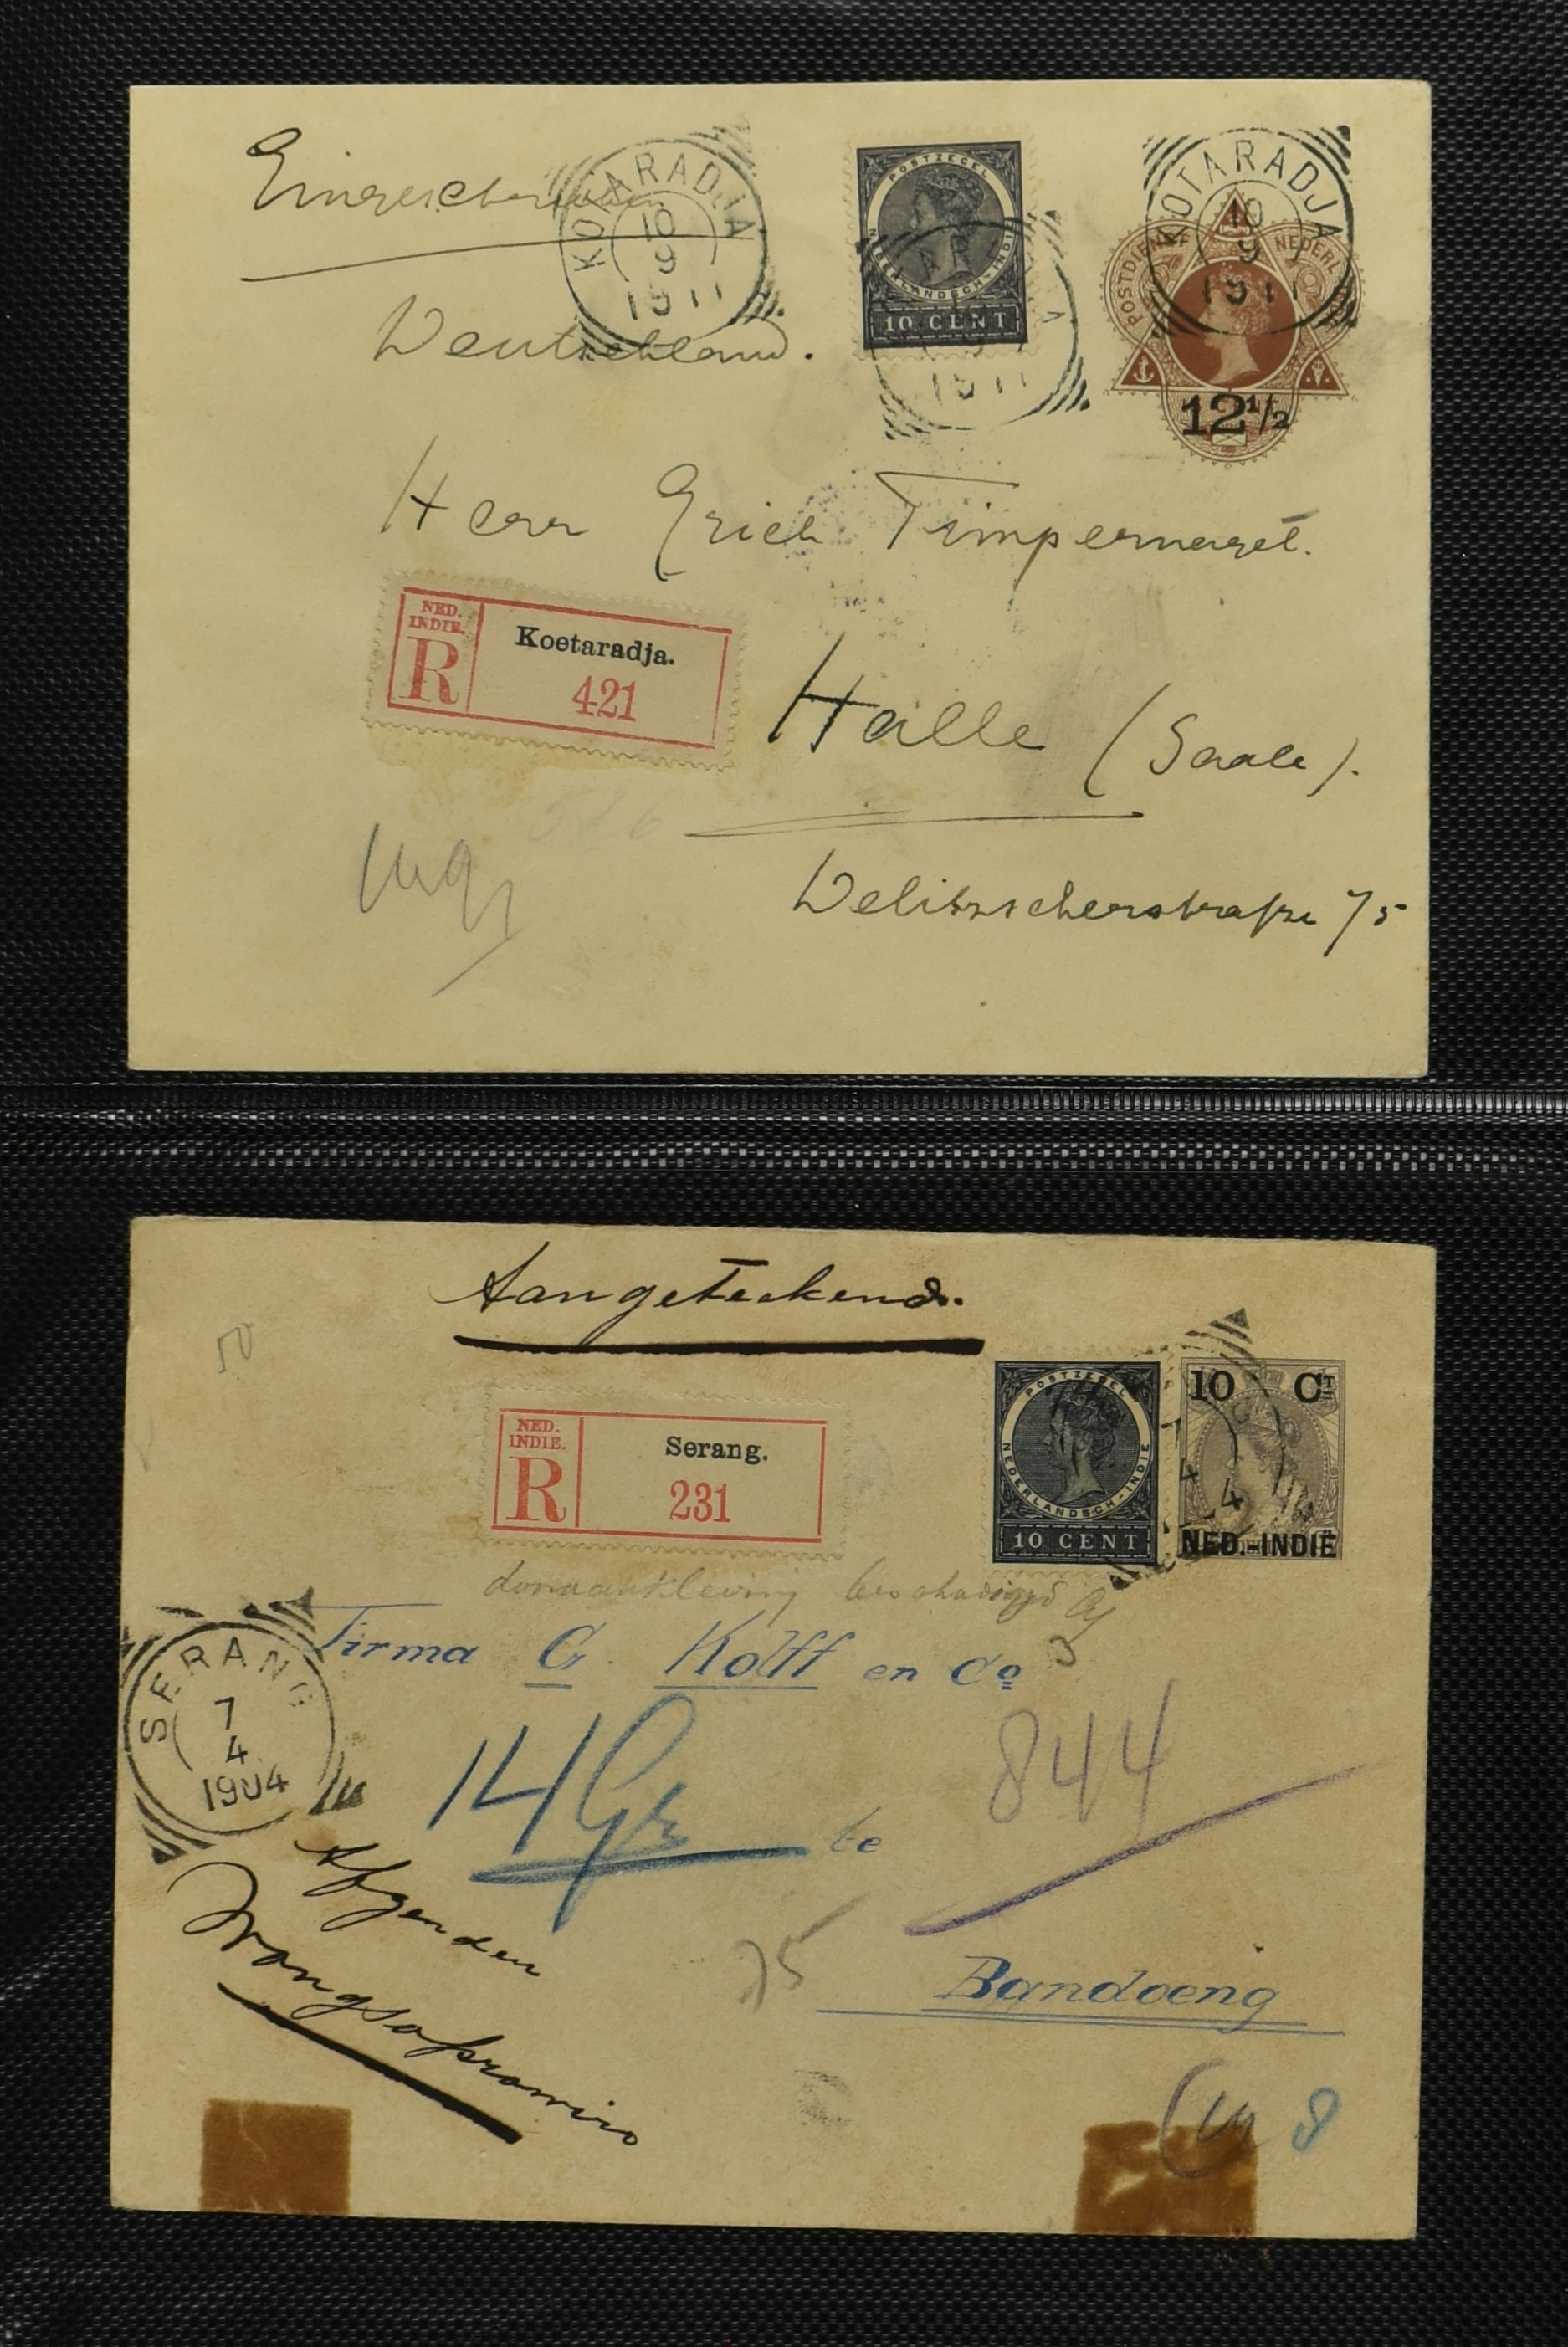 Eingeschrieben
KOTARADJA
10
9
1911
POSTZEGEL
NEDERLANDSCH-INDIE
10 CENT
KOTARADJA
10
9
1911
POSTDIENST NEDERL
12 1/2
1911
Deutschland.
Herr Erich Timpernagel.
NED.
INDIE.
R
Koetaradja.
421
Halle (Saale).
Delitzscherstraße 75
Aangeteekend.
50
NED.
INDIE.
R
Serang.
231
POSTZEGEL
NEDERLANDSCH-INDIE
10 CENT
10 CT
NED.-INDIË
7
4
4
beschadigd
Firma G. Kolff en Co
SERANG
7
4
1904
14 Gr
844
te
Afzender
Wongsoprawiro
75
Bandoeng
8